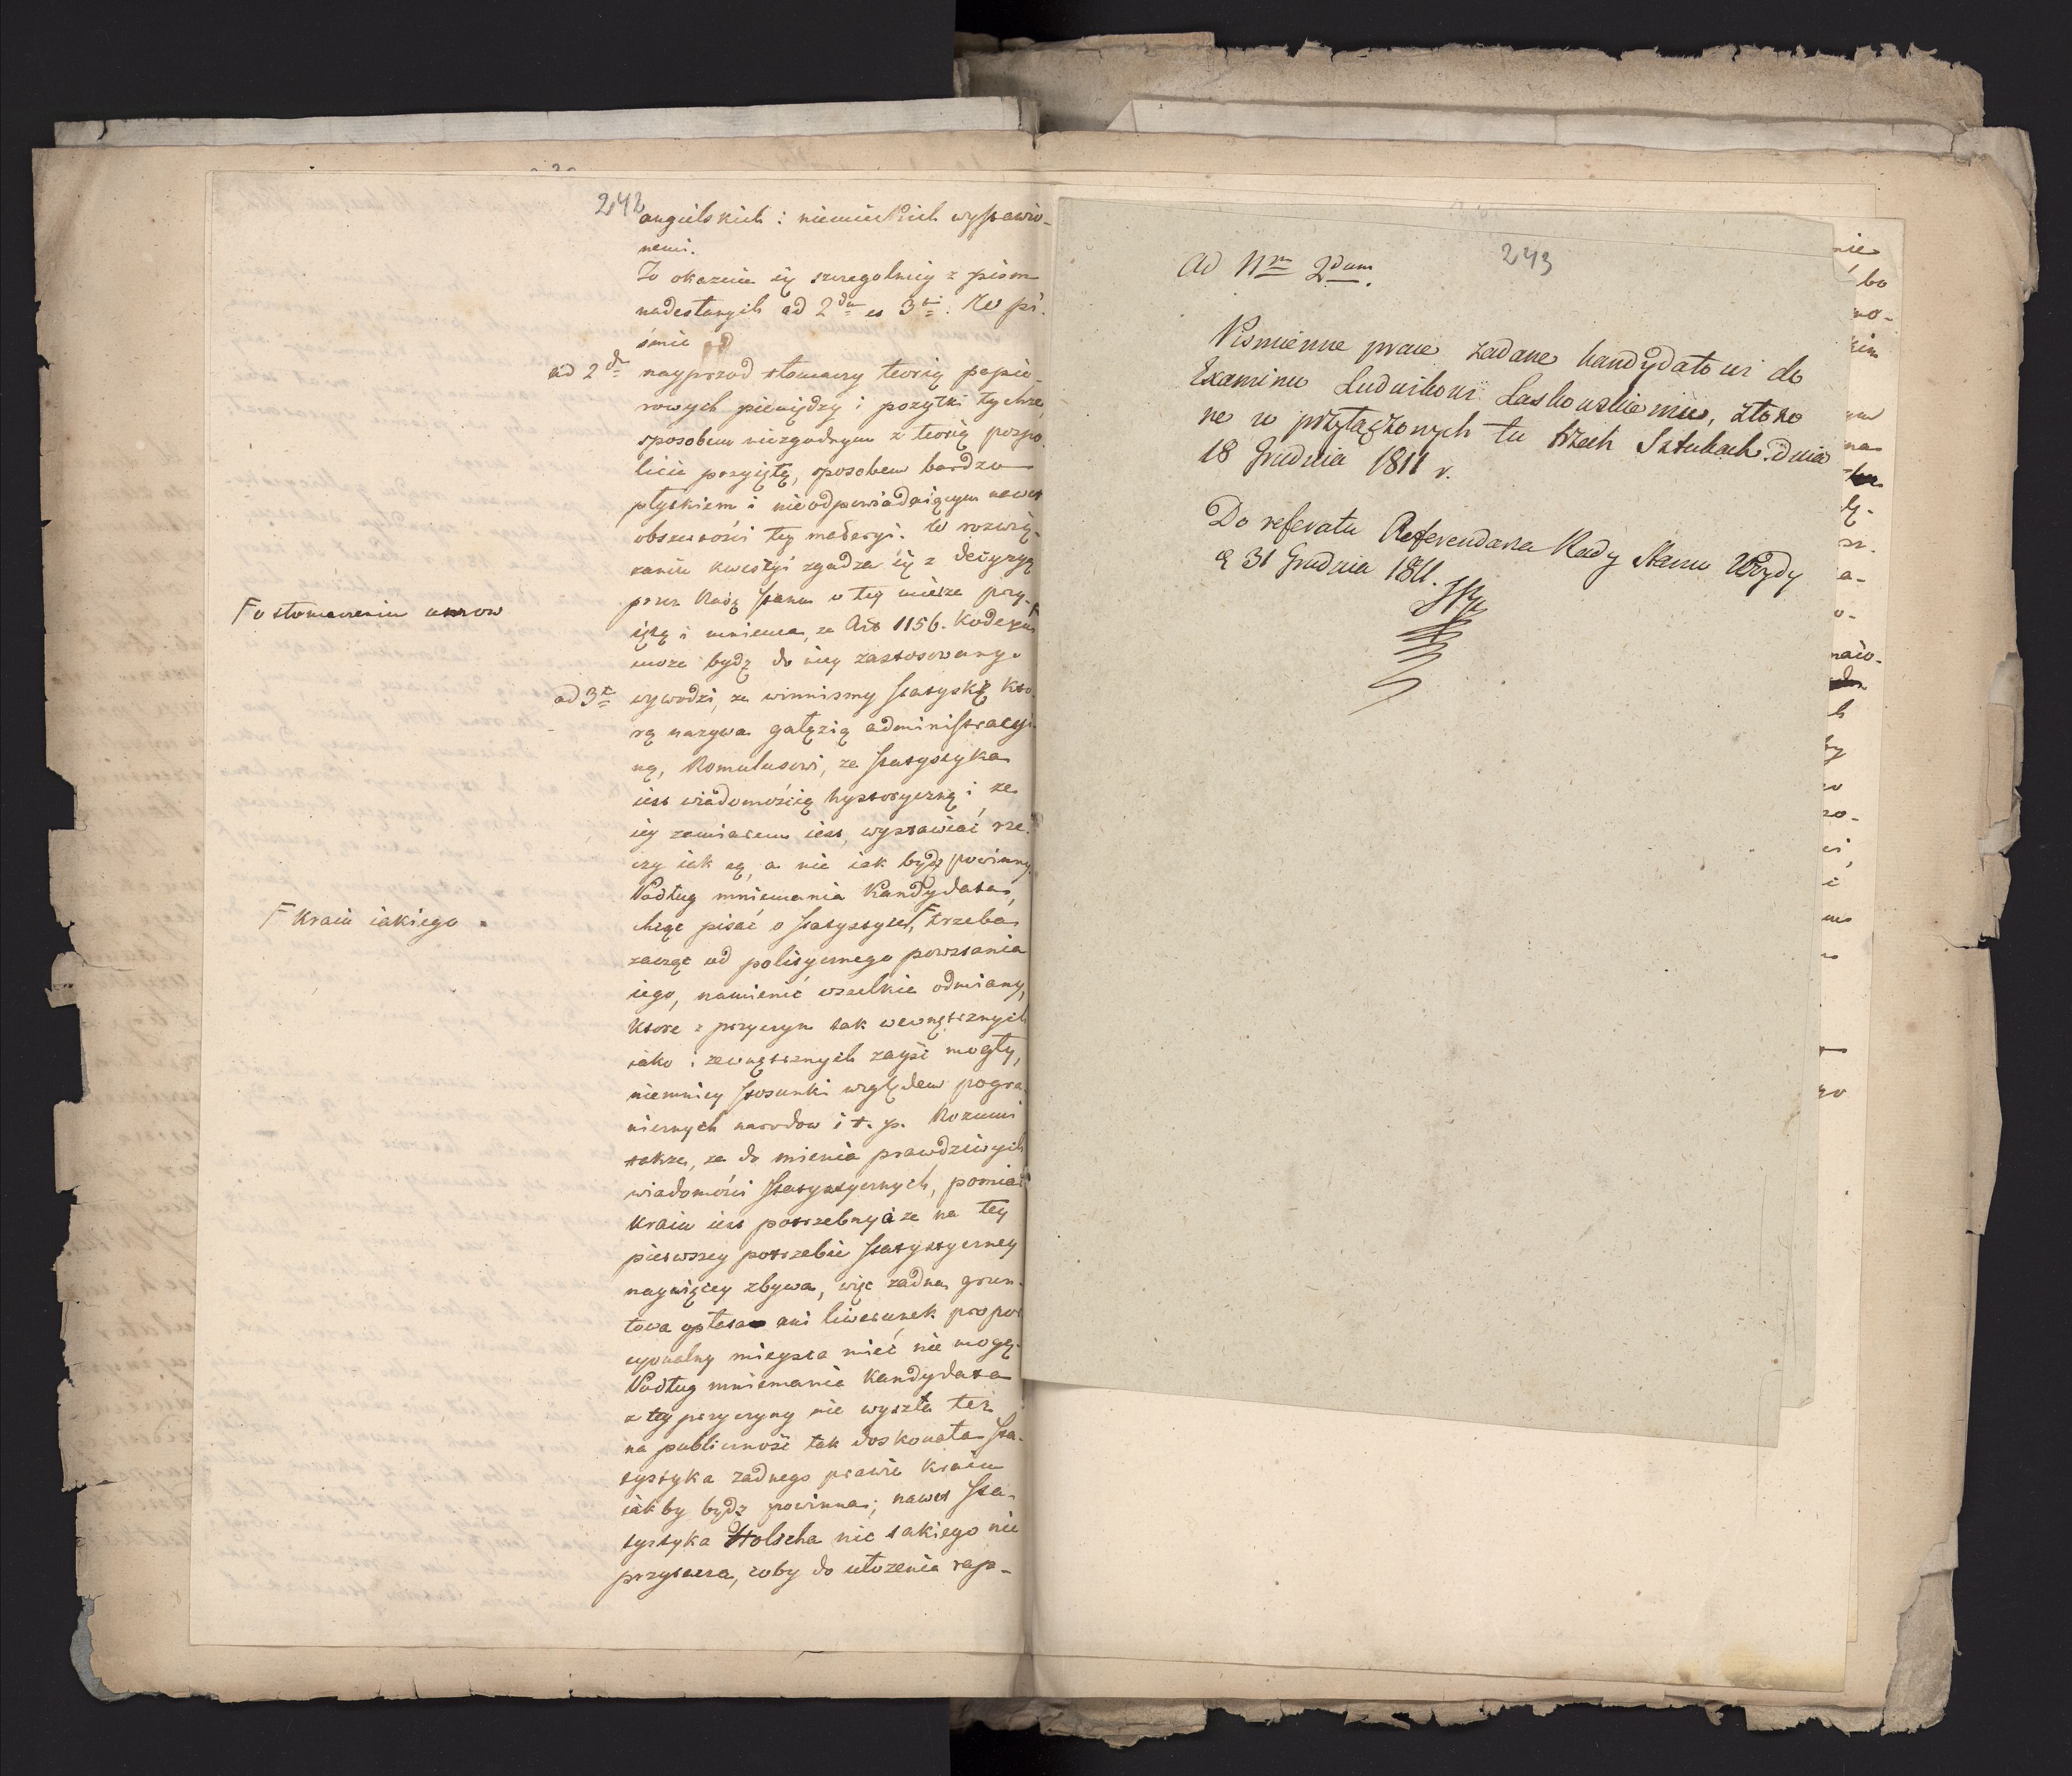 242
angielskich i niemieckich wystawio-
nemi.
To okazuie się szczegolniey z pism
nadesłanych ad 2dm et 3m. W pi-
śmie
ad 2dm nayprzod tłomaczy teorią papie-
rowych pieniędzy i pożytki tychże,
sposobem niezgodnym z teorią pospo-
licie przyiętą, sposobem bardzo
płyskiem i nieodpowiadaiącym nawet
obszerności tey materyi. W rozwią-
zaniu kwestyi zgadza się z decyzyą
przez Radę Stanu w tey mierze przy-
F o tłomaczeniu umow
iętą i mniema, że Art 1156. Kodexu F
może bydź do niey zastosowany.
ad 3m wywodzi, że winnismy statystykę kto-
rą nazywa gałęzią administracyi-
ną, Romulusowi, że statystyka
iest wiadomością hystoryczną i że
iey zamiarem iest, wystawiać rze-
czy iak są, a nie iak bydź powinny.
Podług mniemania Kandydata,
F Kraiu iakiego
chcąc pisać o statystyce F, trzeba
zacząć od politycznego powstania
iego, namienić wszelkie odmiany,
ktore z przyczyn tak wewnętrznych
iako i zewnętrznych zayść mogły,
niemniey stosunki względem pogra-
nicznych narodow i t. p. Rozumi
także, że do mienia prawdziwych
wiadomości statystycznych, pomiar
kraiu iest potrzebny a że na tey
pierwszey potrzebie statystyczney
naywięcey zbywa, więc żadna grun-
towa opłata ani liwerunek propor
cyonalny mieysca mieć nie mogą.
Podług mniemania Kandydata
z tey przyczyny nie wyszła też
na publiczność tak doskonała sta-
tystyka żadnego prawie kraiu
iakby bydź powinna; nawet sta-
tystyka Holscha nic takiego nie
przytacza, coby do ułożenia rap-
243
ad Nrm 2dum.
Pismienne prace zadane kandydatowi do
Examinu Ludwikowi Laskowskiemu, złożo
ne w przyłączonych tu trzech Sztukach. dnia
18 Grudnia 1811 r.
Do referatu Referendarza Rady Stanu Wgo
d 31 Grudnia 1811.